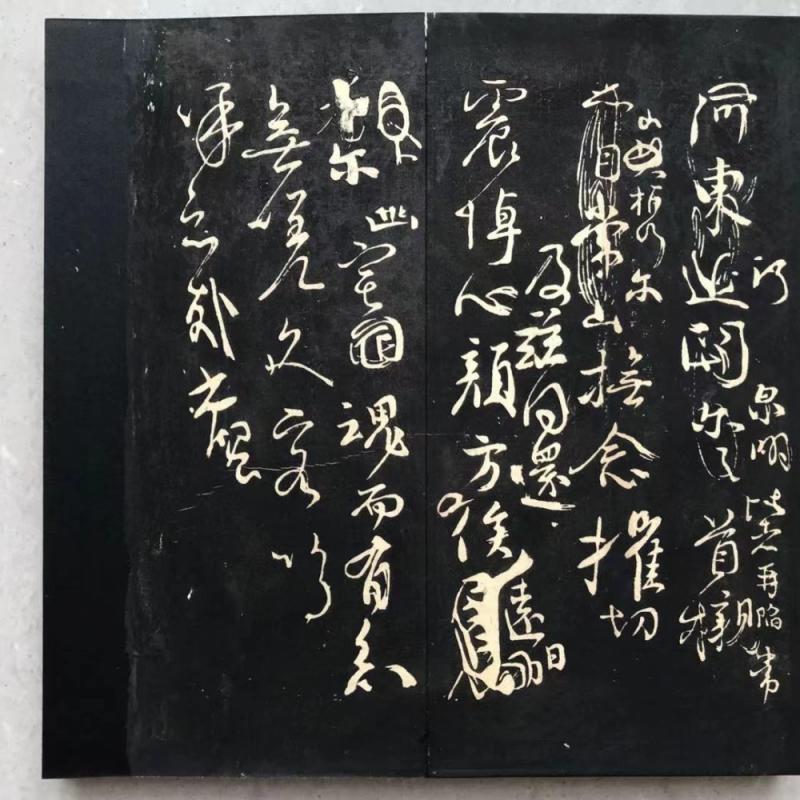 行泉明比者再陷常
河東近關尔之首櫬
山攜尔
亦自常山撫念摧切
及茲同還
震悼心顏方俟
遠日
卜尔幽宅魂而有知
無嗟久客嗚
呼哀哉尚饗